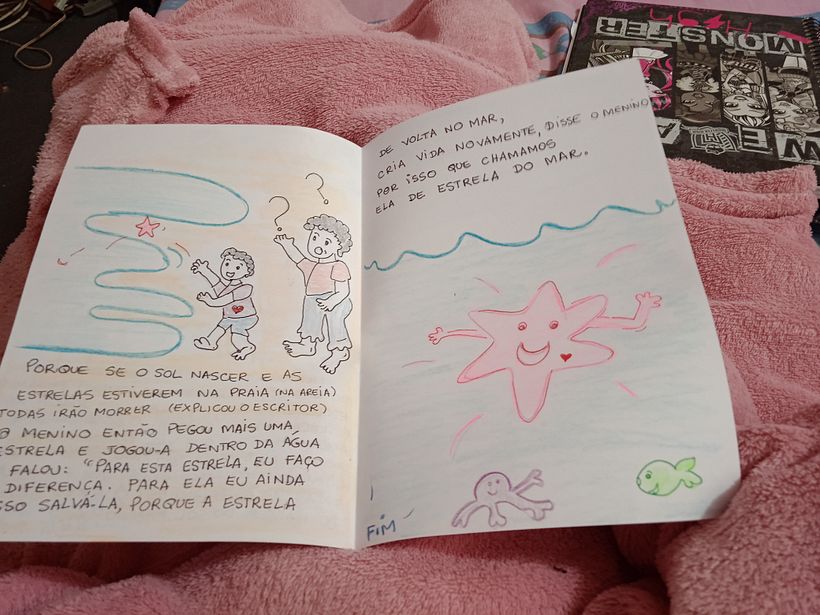 PORQUE SE O SOL NASCER E AS
ESTRELAS ESTIVEREM NA PRAIA (NA AREIA)
TODAS IRÃO MORRER (EXPLICOU O ESCRITOR)
O MENINO ENTÃO PEGOU MAIS UMA
ESTRELA E JOGOU-A DENTRO DA ÁGUA
FALOU: "PARA ESTA ESTRELA, EU FAÇO
DIFERENÇA. PARA ELA EU AINDA
SSO SALVÁ-LA, PORQUE A ESTRELA
DE VOLTA NO MAR,
CRIA VIDA NOVAMENTE, DISSE O MENINO
POR ISSO QUE CHAMAMOS
ELA DE ESTRELA DO MAR.
FIM
MONSTER
HIGH
WE A